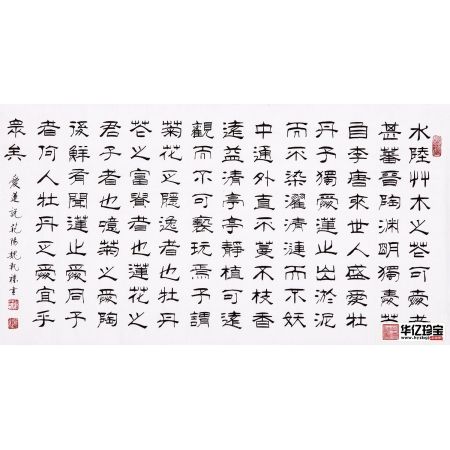 水陸艸木之花可愛者
甚蕃晉陶淵明獨愛菊
自李唐來世人盛愛牡
丹予獨愛蓮之出淤泥
而不染濯清漣而不妖
中通外直不蔓不枝香
遠益清亭亭靜植可遠
觀而不可褻玩焉予謂
菊花之隱逸者也牡丹
花之富貴者也蓮花之
君子者也噫菊之愛陶
後鮮有聞蓮之愛同予
者何人牡丹之愛宜乎
眾矣
愛蓮說范陽書
华亿珍宝